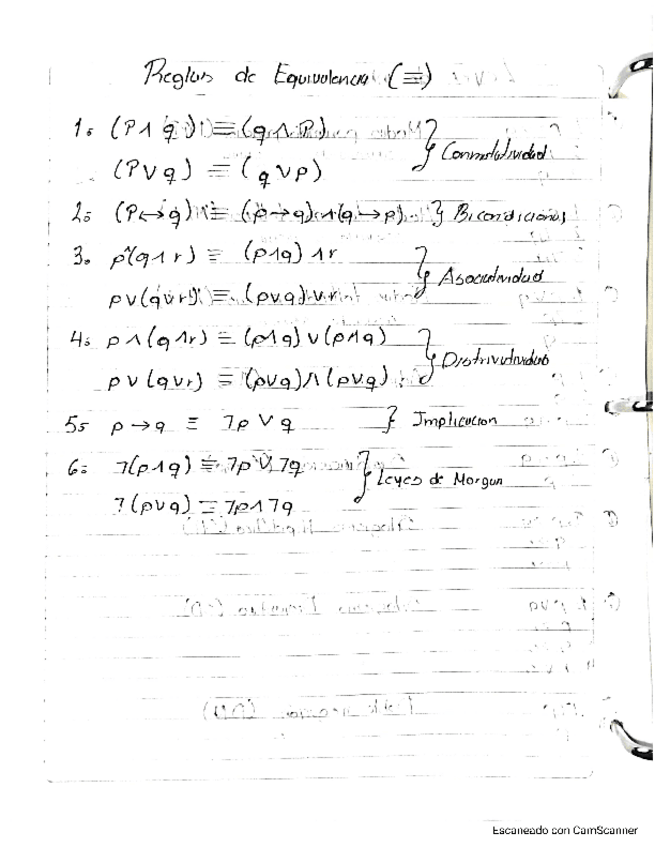 Reglas de Equivalencia (≡)
1. (P ∧ q) ≡ (q ∧ P) } Conmutatividad
(P ∨ q) ≡ (q ∨ p)
2. (P ↔ q) ≡ (p → q) ∧ (q → p) } Bicondicional
3. p ∧ (q ∧ r) ≡ (p ∧ q) ∧ r } Asociatividad
p ∨ (q ∨ r) ≡ (p ∨ q) ∨ r
4. p ∧ (q ∧ r) ≡ (p ∧ q) ∨ (p ∧ q) } Distrivutividad
p ∨ (q ∨ r) ≡ (p ∨ q) ∧ (p ∨ q)
5. p → q ≡ ¬p ∨ q } Implicacion
6. ¬(p ∧ q) ≡ ¬p ∨ ¬q } Leyes de Morgan
¬(p ∨ q) ≡ ¬p ∧ ¬q
Escaneado con CamScanner